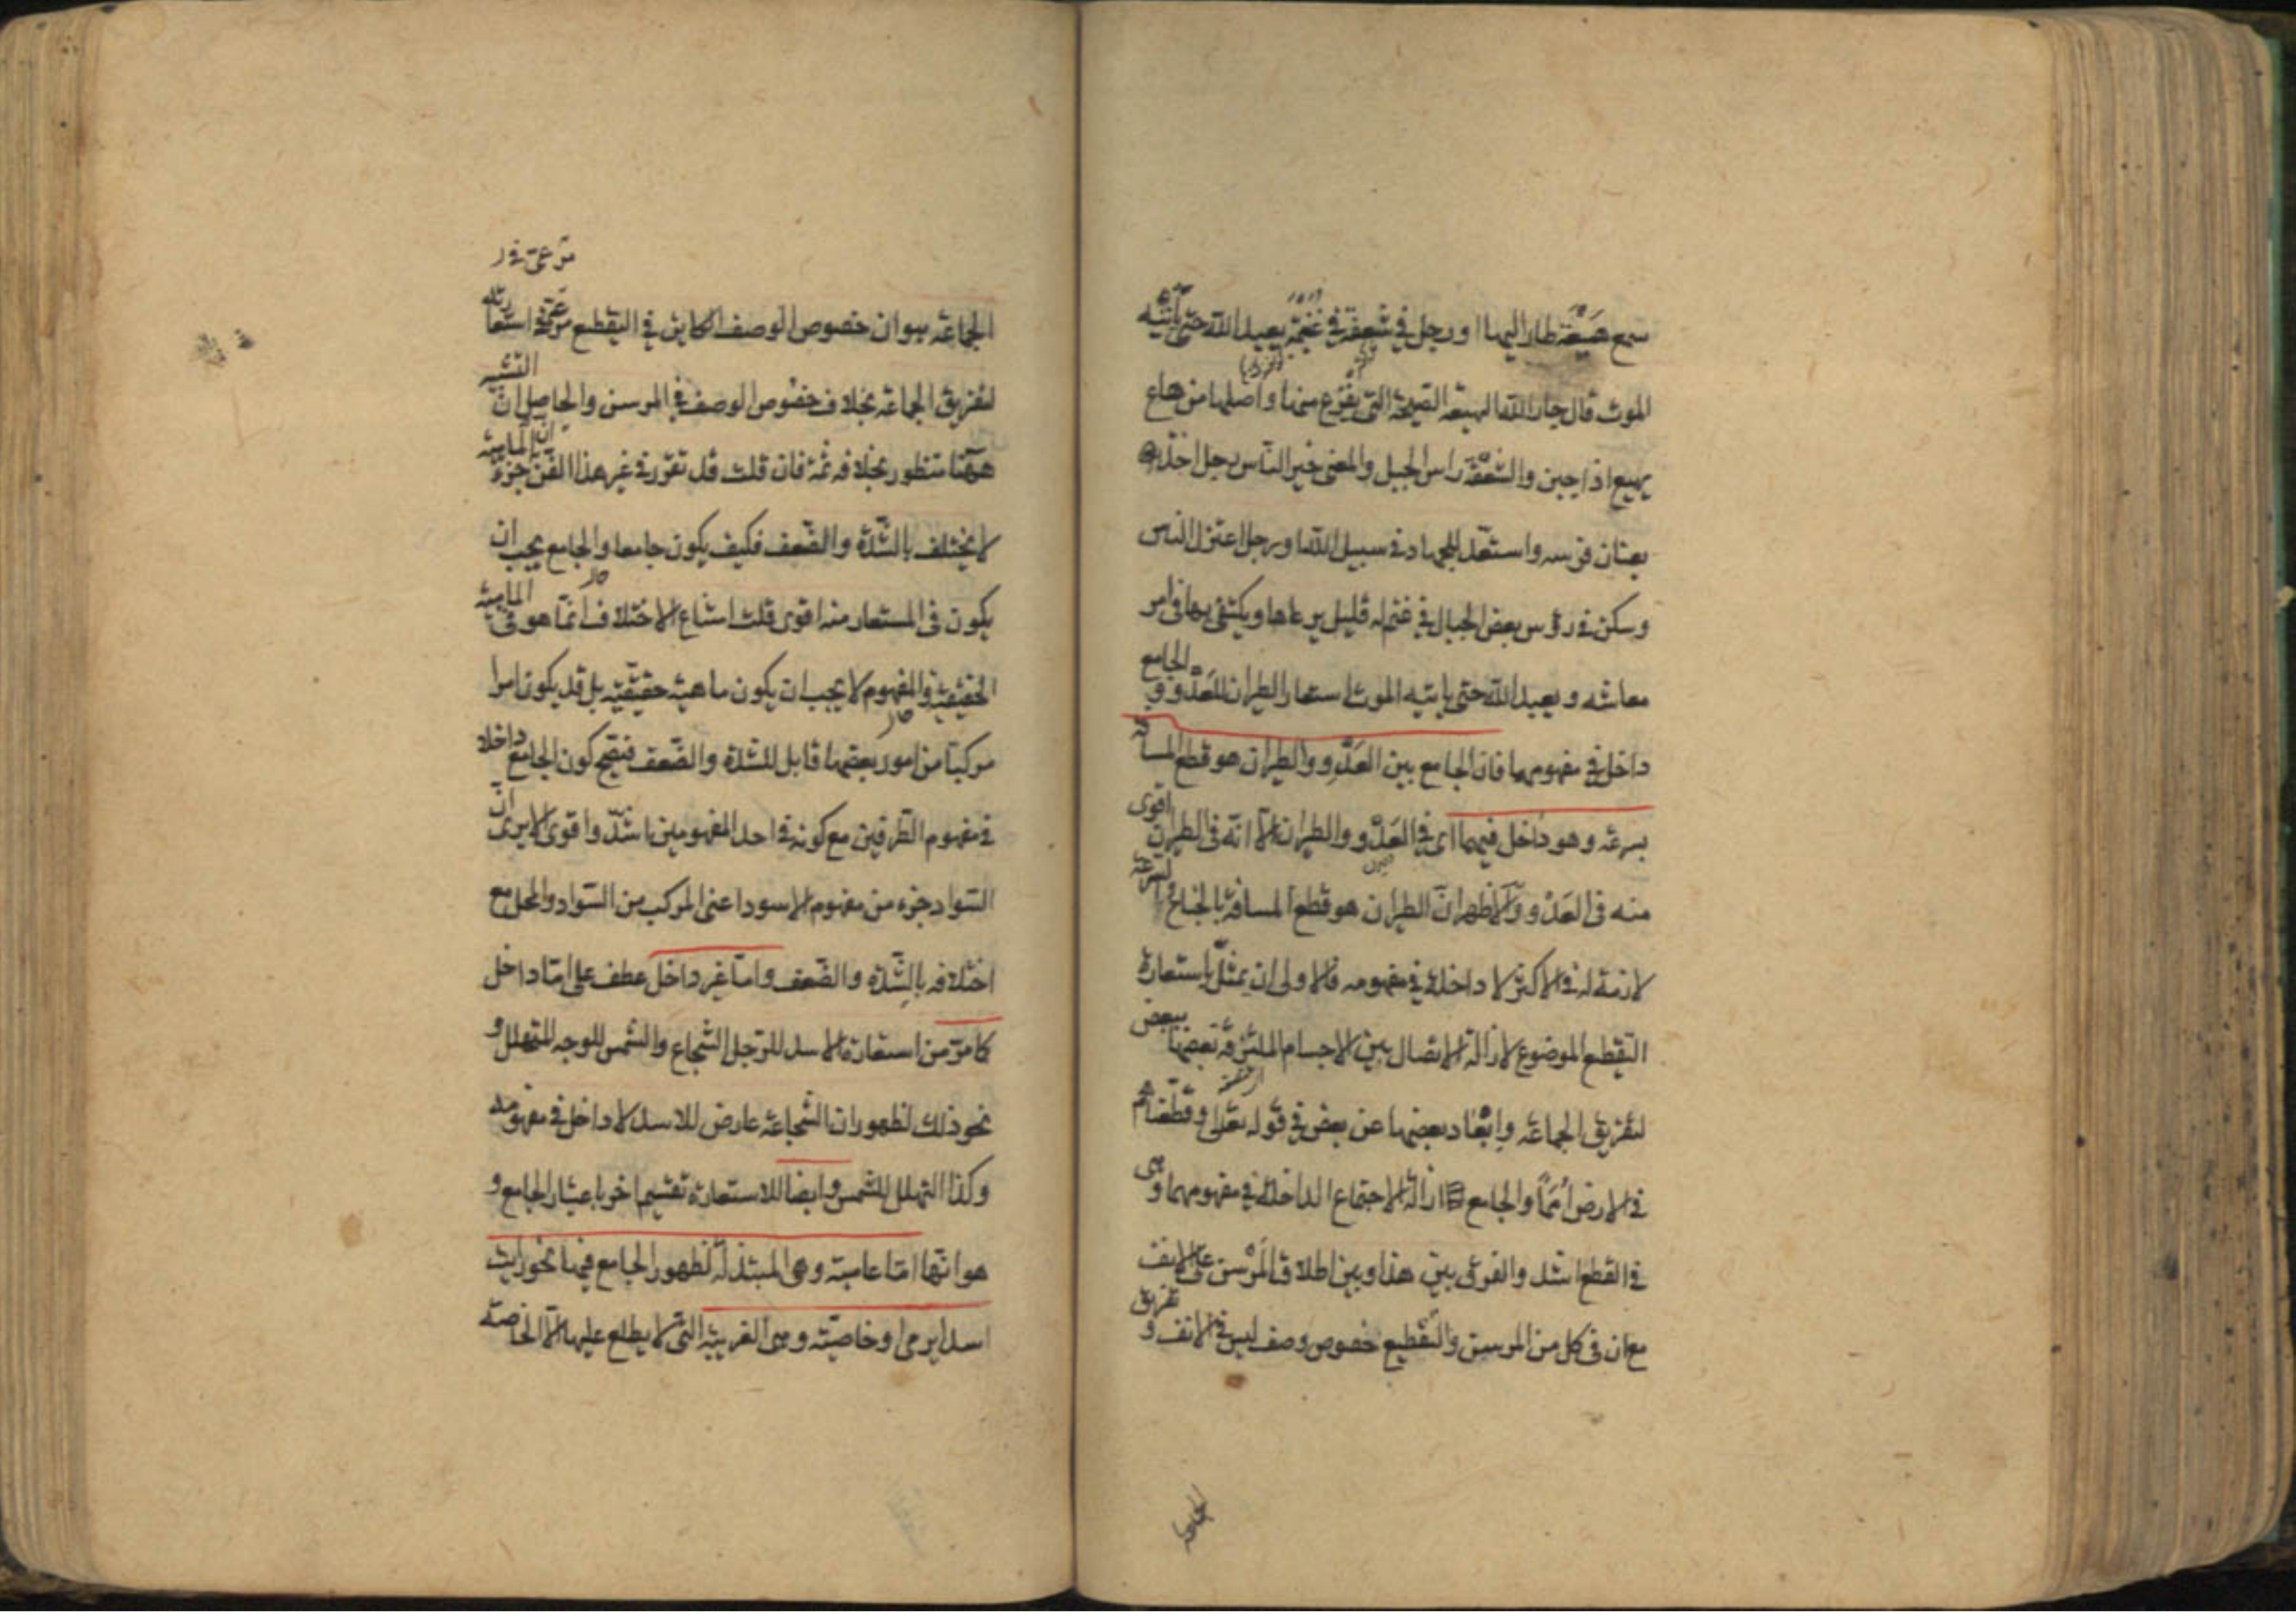 سمع هَيْعَة طار اليها او رجل في شَعفَة في غُنَيمَة يعبد الله حتى يأتيه
الموت قال جار الله الهيعة الصيحة التي يفزع منها واصلها من هاع
يهيع اذا جبن والشعفة راس الجبل والمعنى خير الناس رجل اخذ
بعنان فرسه واستعد للجهاد في سبيل الله او رجل اعتزل الناس
وسكن في رؤس بعض الجبال في غنم له قليل يرعاها ويكتفى بها في امر
معاشه ويعبد الله حتى ياتيه الموت استعار الطيران للعَدْو و الجامع
داخل في مفهومهما فان الجامع بين العَدْوِ والطيران هو قطع المسافة
بسرعة وهو داخل فيهما اى في العَدْو والطيران الا انه في الطيران اقوى
منه في العَدْو والاظهر انّ الطيران هو قطع المسافة بالجناح والسرعة
لازمة له في الاكثر لا داخلة في مفهومه فالاولى ان يمثّل باستعارة
التقطيع الموضوع لازالة الاتصال بين الاجسام الملتزقة بعضها ببعض
لتفريق الجماعة وابْعاد بعضها عن بعض في قوله تعالى وقطّعناهم
في الارض اُمَماً والجامع ازالة الاجتماع الداخلة في مفهومهما وهى
في القطع اشد والفرق بين هذا وبين اطلاق المَرْسِن على الانف
مع ان في كل من المرسن والتقطيع خصوص وصف ليس في الانف و تفريق
الجماعة
الجماعة هو ان خصوص الوصف الكاين في التقطيع مرعىّ في استعارته
لتفريق الجماعة بخلاف خصوص الوصف في المرسن والحاصل ان التشبيه
ههنا منظور بخلافه ثمة فان قلت قد تقرر في غير هذا الفن ان جزء الماهية
لا يختلف بالشدّة والضّعف فكيف يكون جامعا والجامع يجب ان
يكون في المستعار منه اقوى قلت امتناع الاختلاف انما هو في الماهية
الحقيقية والمفهوم لا يجب ان يكون ماهية حقيقية بل قد يكون امرا
مركبا من امور بعضها قابل للشدة والضّعف فيصح كون الجامع داخلا
في مفهوم الطرفين مع كونه في احد المفهومين اشدّ واقوى الا يرى ان
السّواد جزء من مفهوم الاسود اعنى المركب من السّواد والمحل مع
اختلافه بالشّدّة والضّعف واما غير داخل عطف على اما داخل
كما مرّ من استعارة الاسد للرّجل الشجاع والشمس للوجه المتهلل و
نحو ذلك لظهور ان الشجاعة عارض للاسد لا داخل في مفهومه
وكذا التهلل للشمس وايضا للاستعارة تقسيم اخر باعتبار الجامع و
هو انها امّا عامية وهى المبتذلة لظهور الجامع فيها نحو رايت
اسدا يرمى او خاصّيّة وهى الغريبة التى لا يطلع عليها الا الخاصّة